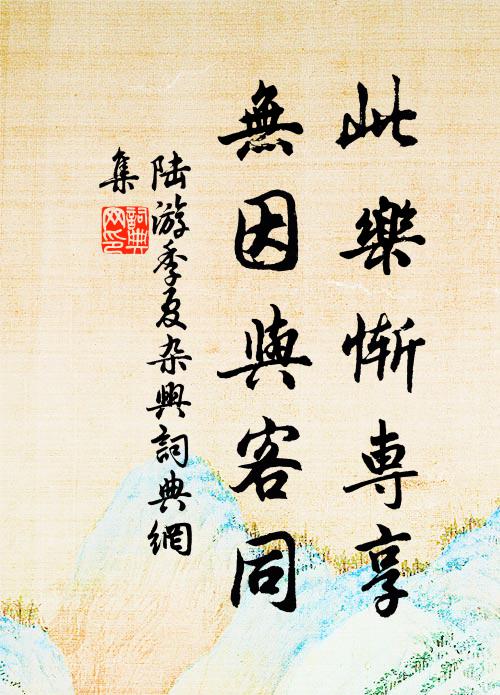 此樂慚専享
無因與客同
陆游季夏杂興詞典網
集
詞典
网印